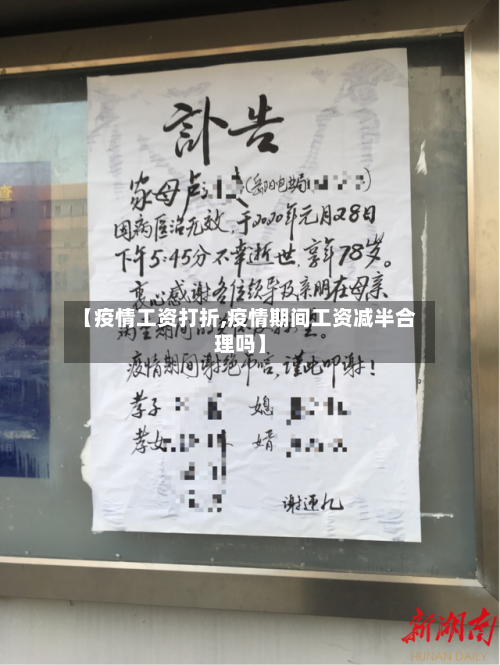 讣告
家母卢
因病医治无效,于2020年元月28日
下午5:45分不幸逝世,享年78岁。
衷心感谢各位领导及亲朋在母亲
【疫情工资打折,疫情期间工资减半合
理吗】
疫情期间谢绝吊唁,谨此叩谢!
孝子 媳
孝女 婿
新湖南
HUNAN DAILY